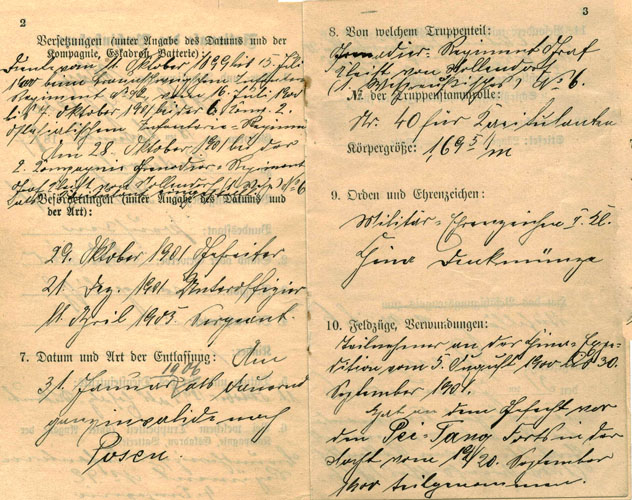 2
Versetzungen (unter Angabe des Datums und der
Kompagnie, Eskadron, Batterie):
Dient vom 11. Oktober 1899 bis 15. Juli
1900 beim Braunschweigischen Infanterie
Regiment No 92, vom 16. Juli 1900
bis 7. Oktober 1901 bei der 6. Komp. 2.
Ostasiatischen Infanterie-Regiment
Am 28. Oktober 1901 bei der
2. Kompagnie Grenadier-Regiment
Graf Kleist von Nollendorf (1. Westpr.) No 6
Beförderungen (unter Angabe des Datums und
der Art):
29. Oktober 1901 Gefreiter
21. Dez. 1901 Unteroffizier
11. April 1905. Sergeant.
7. Datum und Art der Entlassung: Am
31. Januar 1906 als dauernd
ganzinvalide nach
Posen.
3
8. Von welchem Truppenteil:
Grenadier-Regiment Graf
Kleist von Nollendorf
(1. Westpreußisches) No 6.
Nr. der Truppenstammrolle:
Nr. 40 für Kapitulanten
Körpergröße: 1,69 5 m
9. Orden und Ehrenzeichen:
Militär-Ehrenzeichen II. Kl.
China Denkmünze
10. Feldzüge, Verwundungen:
Teilnehmer an der China-Expe-
dition vom 5. August 1900 bis 30.
September 1901.
Hat an dem Gefecht vor
den Pei-Tang Forts in der
Nacht vom 19/20. September
1900 teilgenommen.